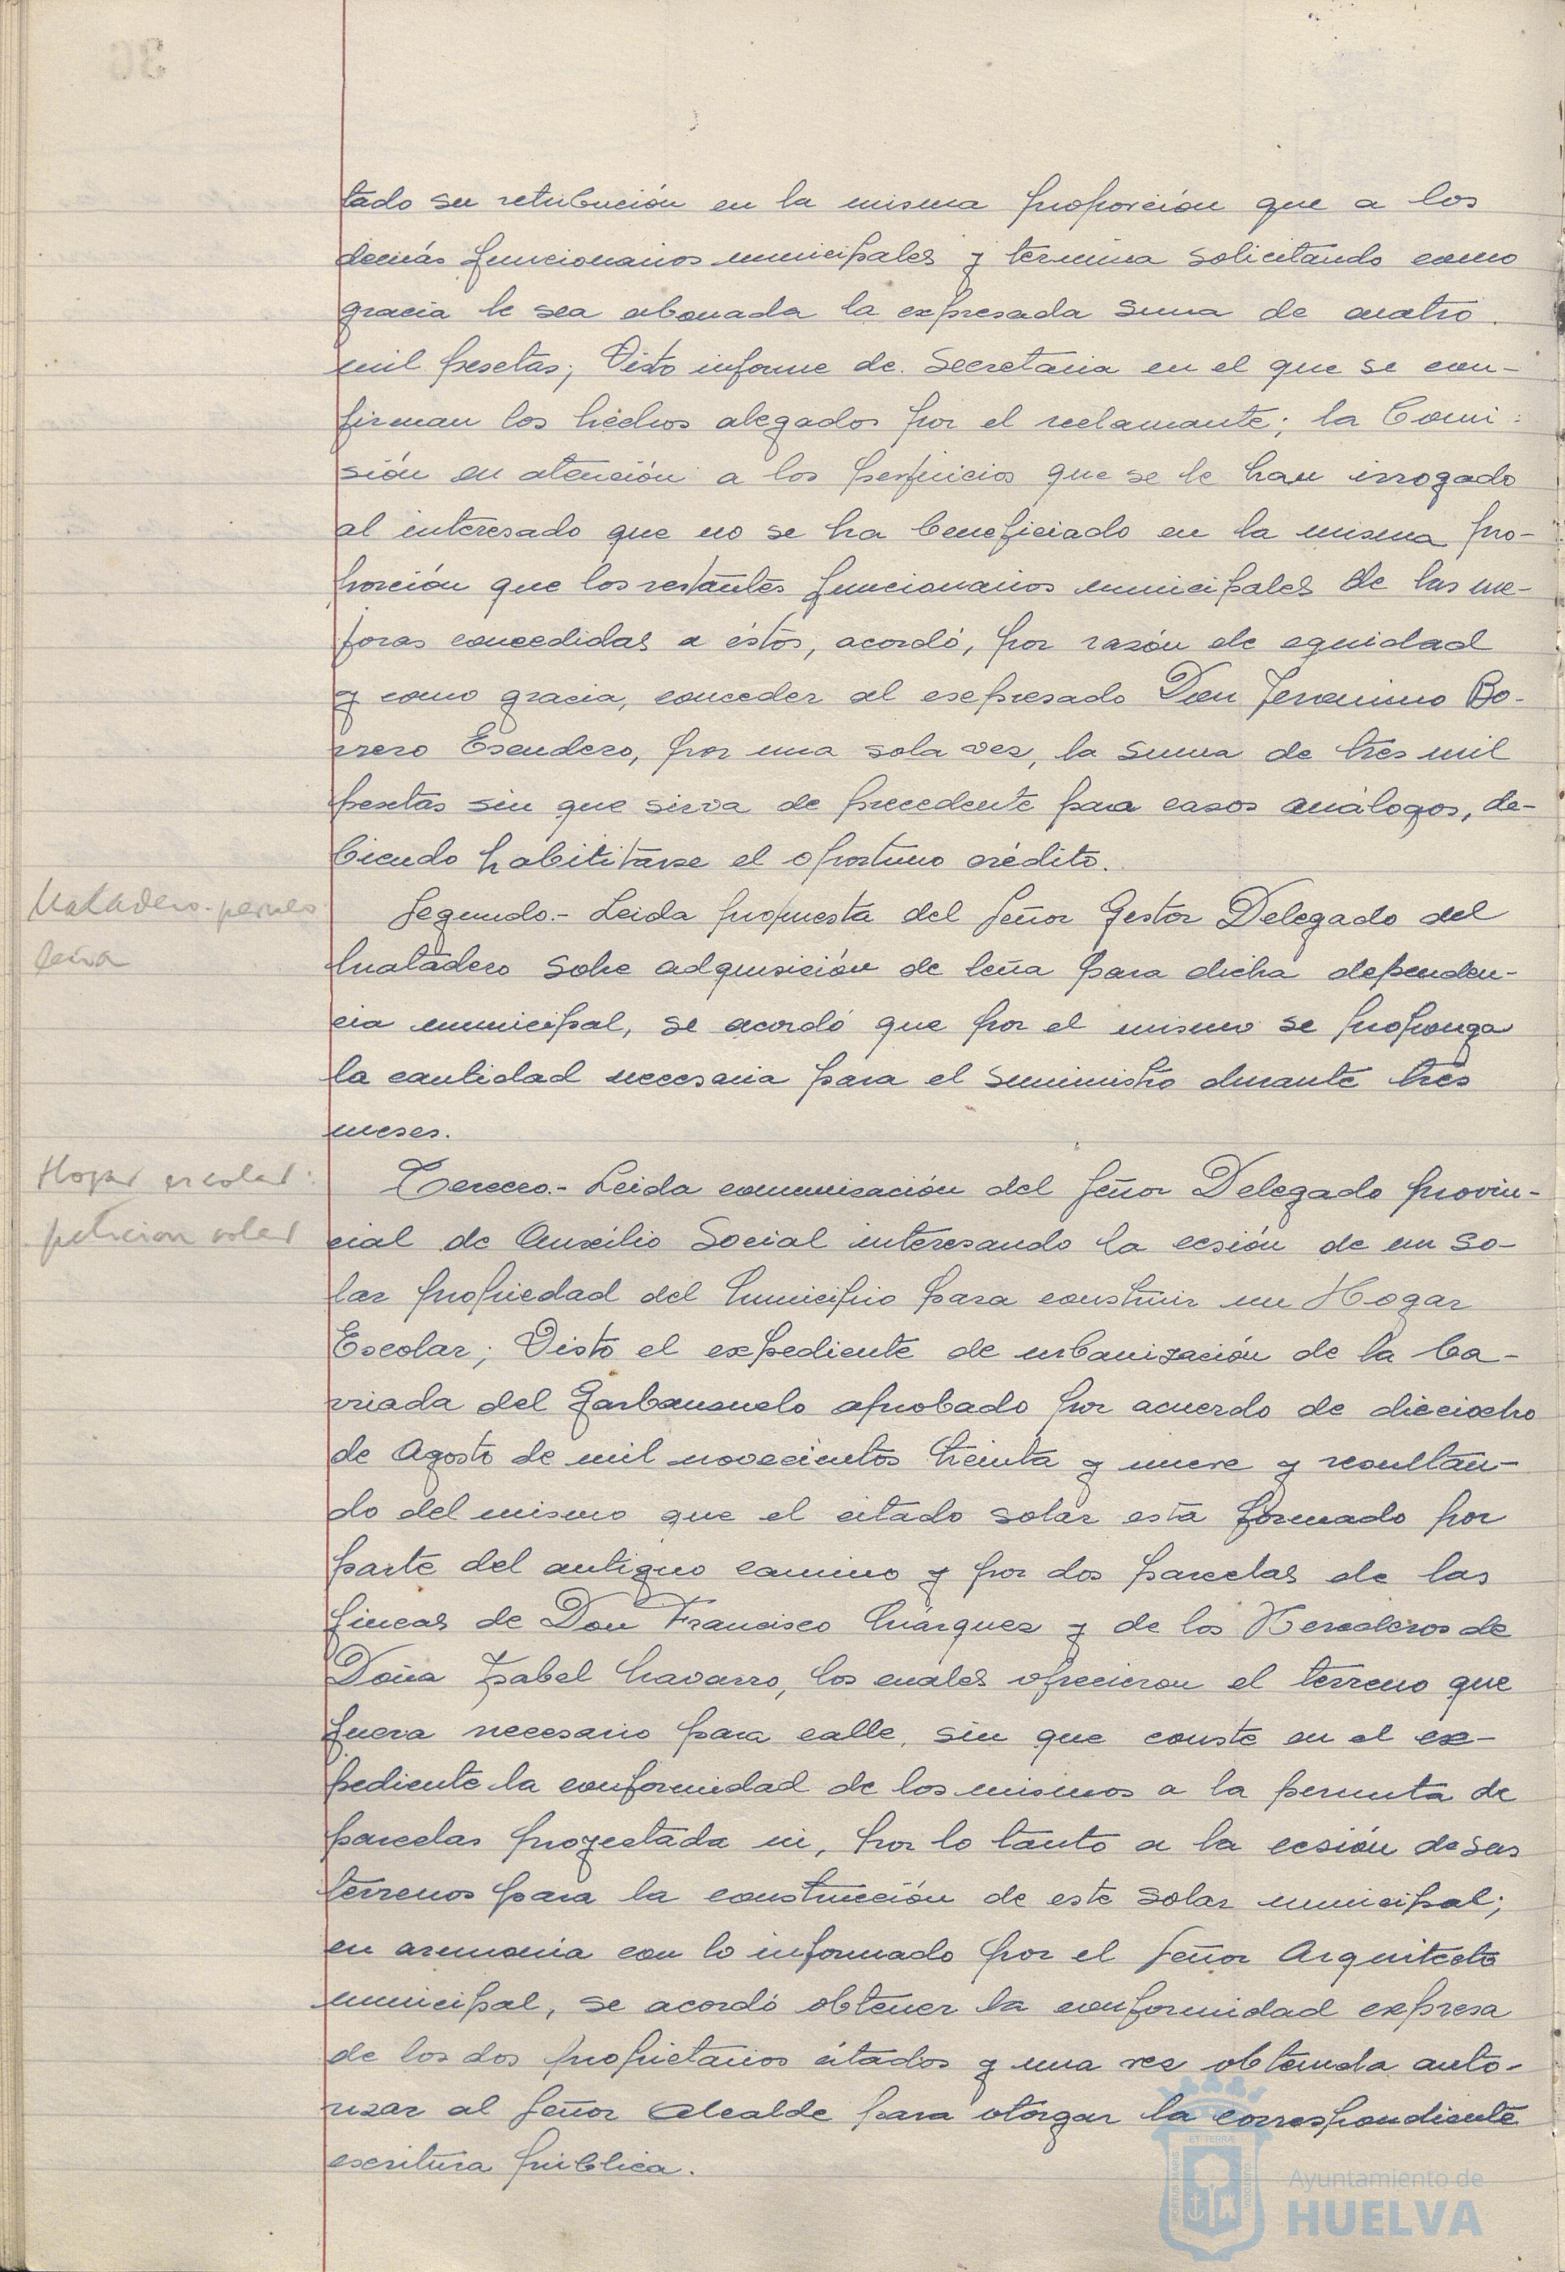 tado su retribución en la misma proporción que a los
demás funcionarios municipales y termina solicitando como
gracia le sea abonada la expresada suma de cuatro
mil pesetas; Visto informe de Secretaria en el que se con-
firman los hechos alegados por el reclamante; la Comi-
sión en atención a los perjuicios que se le han irrogado
al interesado que no se ha beneficiado en la misma pro-
porción que los restantes funcionarios municipales de las me-
joras concedidas a éstos, acordó, por razón de equidad
y como gracia, conceder al expresado Don Jeronimo Bo-
rrero Escudero, por una sola vez, la suma de tres mil
pesetas sin que sirva de precedente para casos análogos, de-
biendo habilitarse el oportuno crédito.
Matadero.
leña
Segundo.- Leida propuesta del Señor Gestor Delegado del
Matadero sobre adquisición de leña para dicha dependen-
cia municipal, se acordó que por el mismo se proponga
la cantidad necesaria para el suministro durante tres
meses.
Hogar escolar:
petición solar
Tercero.- Leida comunicación del Señor Delegado provin-
cial de Auxilio Social interesando la cesión de un so-
lar propiedad del Municipio para construir un Hogar
Escolar; Visto el expediente de urbanización de la ba-
rriada del Garbanzuelo aprobado por acuerdo de dieciocho
de Agosto de mil novecientos treinta y nueve y resultan-
do del mismo que el citado solar está formado por
parte del antiguo camino y por dos parcelas de las
fincas de Don Francisco Márquez y de los Herederos de
Doña Isabel Navarro, los cuales ofrecieron el terreno que
fuera necesario para calle, sin que conste en el ex-
pediente la conformidad de los mismos a la permuta de
parcelas proyectada ni, por lo tanto a la cesión de sus
terrenos para la construcción de este solar municipal;
en armonia con lo informado por el Señor Arquitecto
municipal, se acordó obtener la conformidad expresa
de los dos propietarios citados y una vez obtenida auto-
rizar al Señor Alcalde para otorgar la correspondiente
escritura pública.
Ayuntamiento de
HUELVA